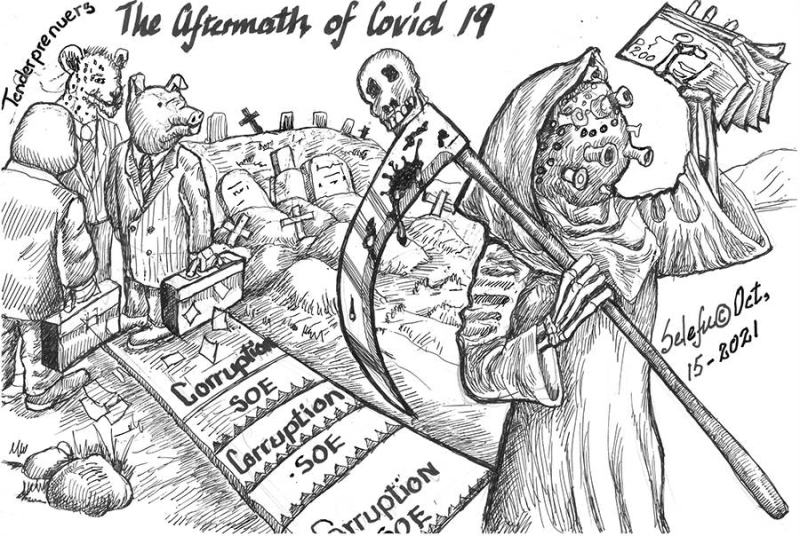 The Aftermath of Covid 19
Tenderprenuers
200
Corruption
SOE
Corruption
SOE
Corruption
SOE
Selefu © Oct,
15-2021